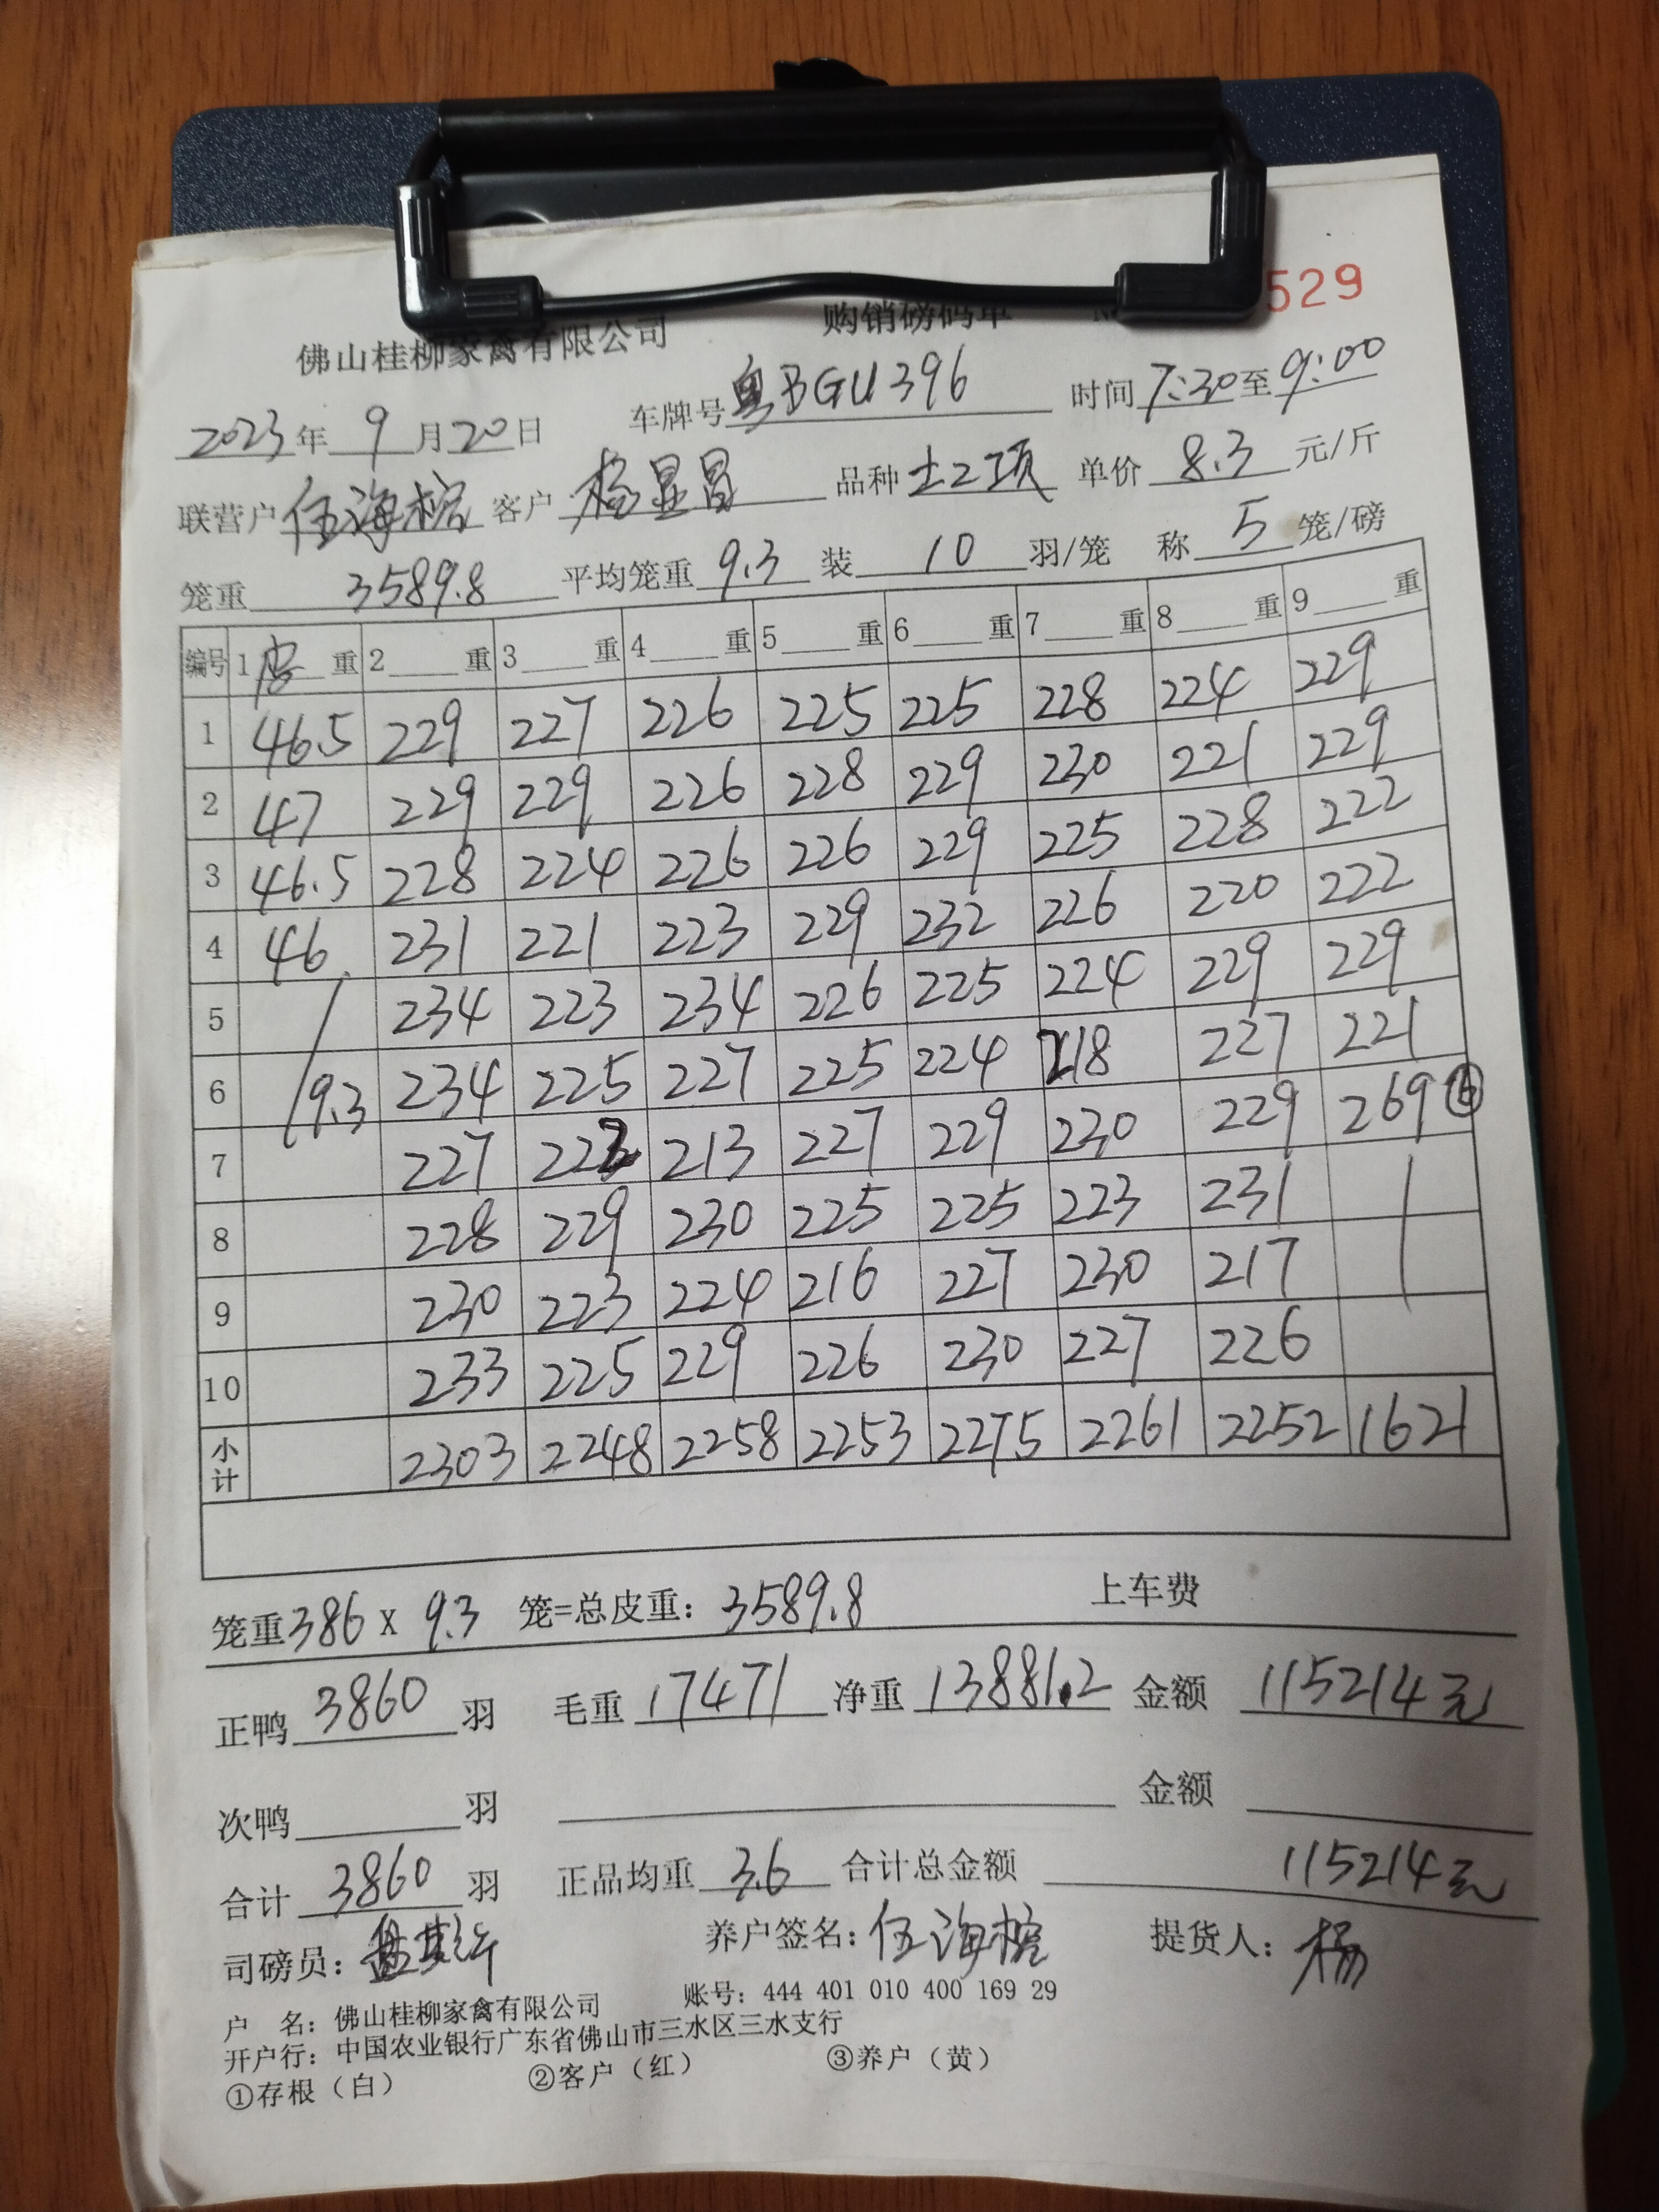 佛山桂柳家禽有限公司 购销磅码单 529
2023年 9月20日 车牌号粤BGU396 时间7:30至9:00
联营户伍海榕 客户杨显昌 品种土2项 单价8.3元/斤
笼重3589.8 平均笼重9.3 装10羽/笼 称5笼/磅
编号 1皮重 2重 3重 4重 5重 6重 7重 8重 9重
1 46.5 229 227 226 225 225 228 224 229
2 47 229 229 226 228 229 230 221 229
3 46.5 228 224 226 226 229 225 228 222
4 46 231 221 223 229 232 226 220 222
5 234 223 234 226 225 224 229 229
6 9.3 234 225 227 225 224 218 227 221
7 227 222 213 227 229 230 229 269 ⑥
8 228 229 230 225 225 223 231
9 230 223 224 216 227 230 217
10 233 225 229 226 230 227 226
小计 2303 2248 2258 2253 2275 2261 2252 1621
笼重386 x 9.3 笼=总皮重：3589.8 上车费
正鸭3860羽 毛重17471 净重13881.2 金额115214元
次鸭 羽 金额
合计3860羽 正品均重3.6 合计总金额115214元
司磅员： 养户签名：伍海榕 提货人：杨
户 名：佛山桂柳家禽有限公司 账号：444 401 010 400 169 29
开户行：中国农业银行广东省佛山市三水区三水支行
①存根（白） ②客户（红） ③养户（黄）